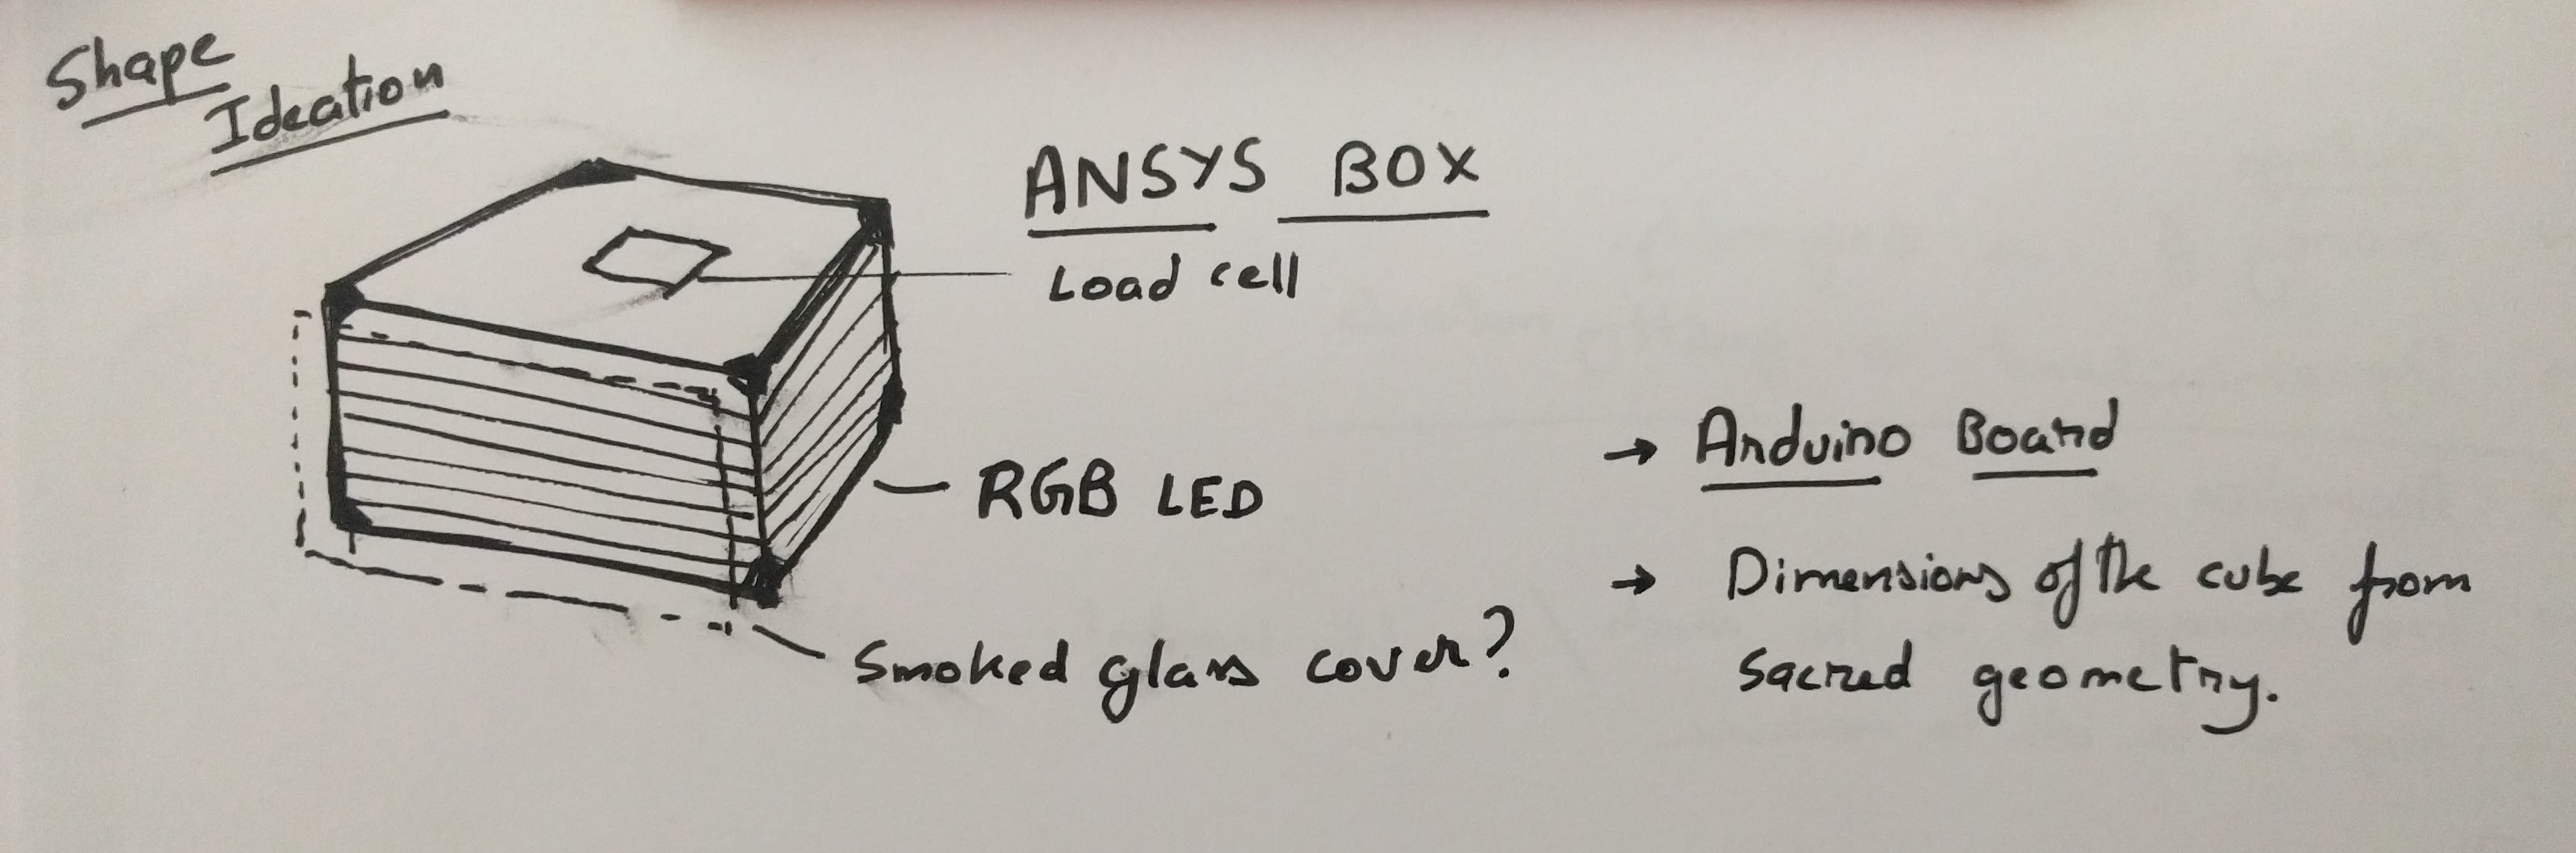 Shape
Ideation
ANSYS BOX
Load cell
RGB LED
Smoked glass cover?
→ Arduino Board
→ Dimensions of the cube from
sacred geometry.